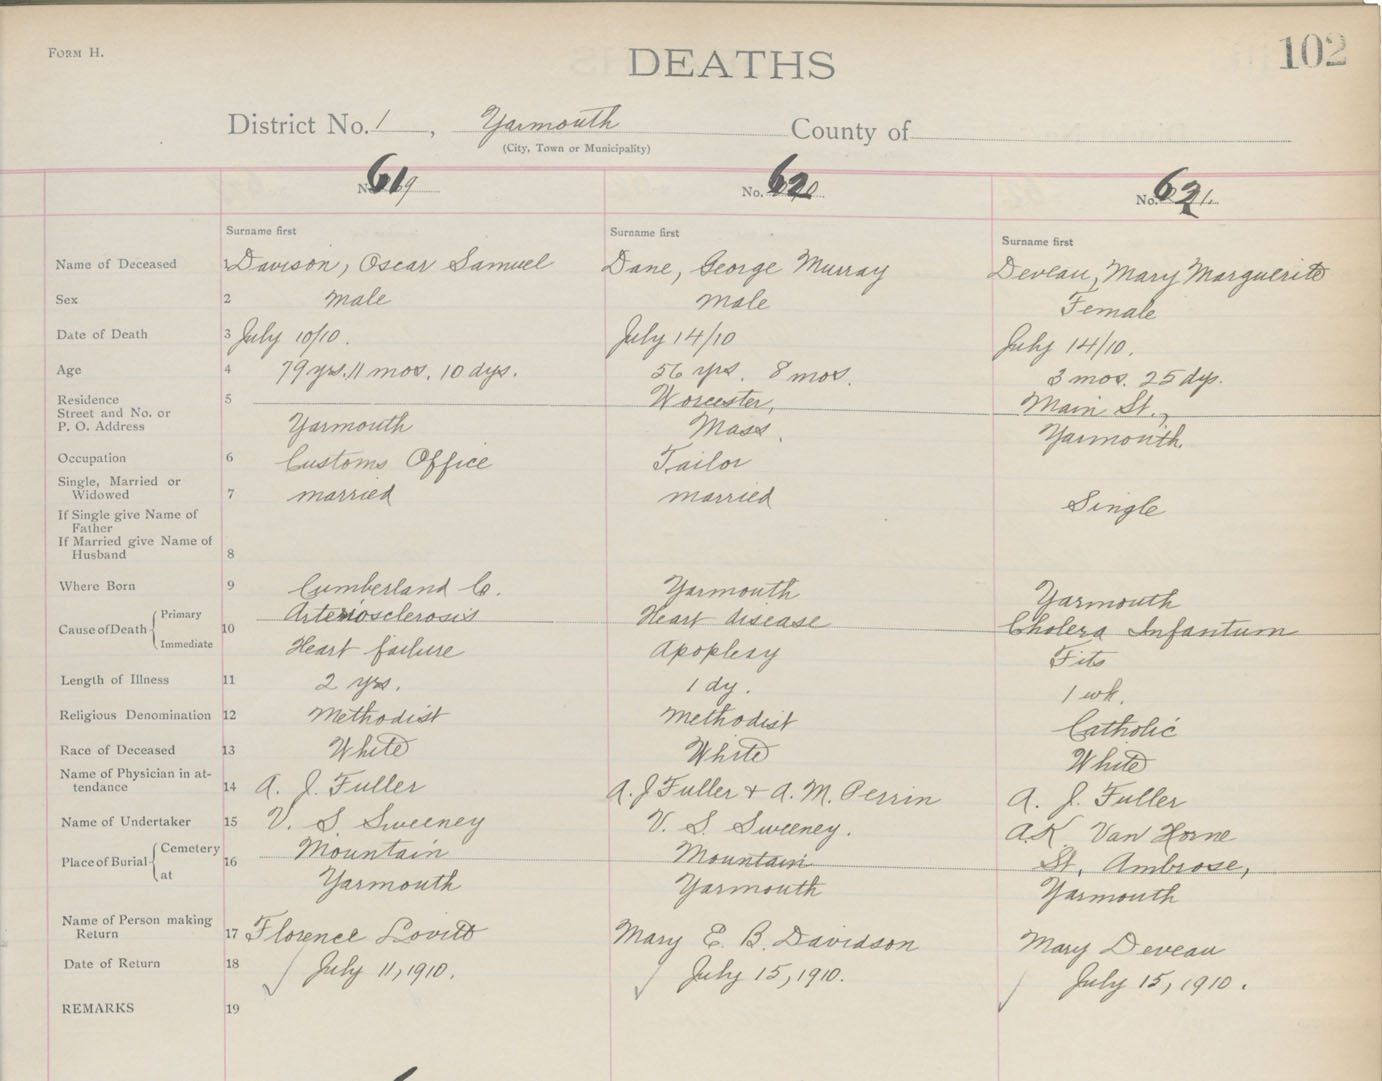 FORM H.
DEATHS
102
District No. 1, Yarmouth County of
(City, Town or Municipality)
61 No. 62 No. 63
Surname first Surname first Surname first
Name of Deceased 1 Davison, Oscar Samuel Dane, George Murray Deveau, Mary Marguerite
Sex 2 male male Female
Date of Death 3 July 10/10. July 14/10 July 14/10.
Age 4 79 yrs. 11 mos. 10 dys. 56 yrs. 8 mos. 3 mos. 25 dys.
Residence 5 Worcester, Main St.,
Street and No. or
P. O. Address Yarmouth Mass. Yarmouth
Occupation 6 Customs Office Tailor
Single, Married or
Widowed 7 married married Single
If Single give Name of
Father
If Married give Name of
Husband 8
Where Born 9 Cumberland Co. Yarmouth Yarmouth
Cause of Death Primary 10 Arteriosclerosis Heart disease Cholera Infantum
Immediate Heart failure Apoplexy Fits
Length of Illness 11 2 yrs. 1 dy. 1 wk.
Religious Denomination 12 Methodist Methodist Catholic
Race of Deceased 13 White White White
Name of Physician in at-
tendance 14 A. J. Fuller A. J Fuller + A. M. Perrin A. J. Fuller
Name of Undertaker 15 V. S. Sweeney V. S. Sweeney. A.K. Van Horne
Place of Burial Cemetery 16 Mountain Mountain St. Ambrose,
at Yarmouth Yarmouth Yarmouth
Name of Person making
Return 17 Florence Lovitt Mary E. B. Davidson Mary Deveau
Date of Return 18 July 11, 1910. July 15, 1910. July 15, 1910.
REMARKS 19